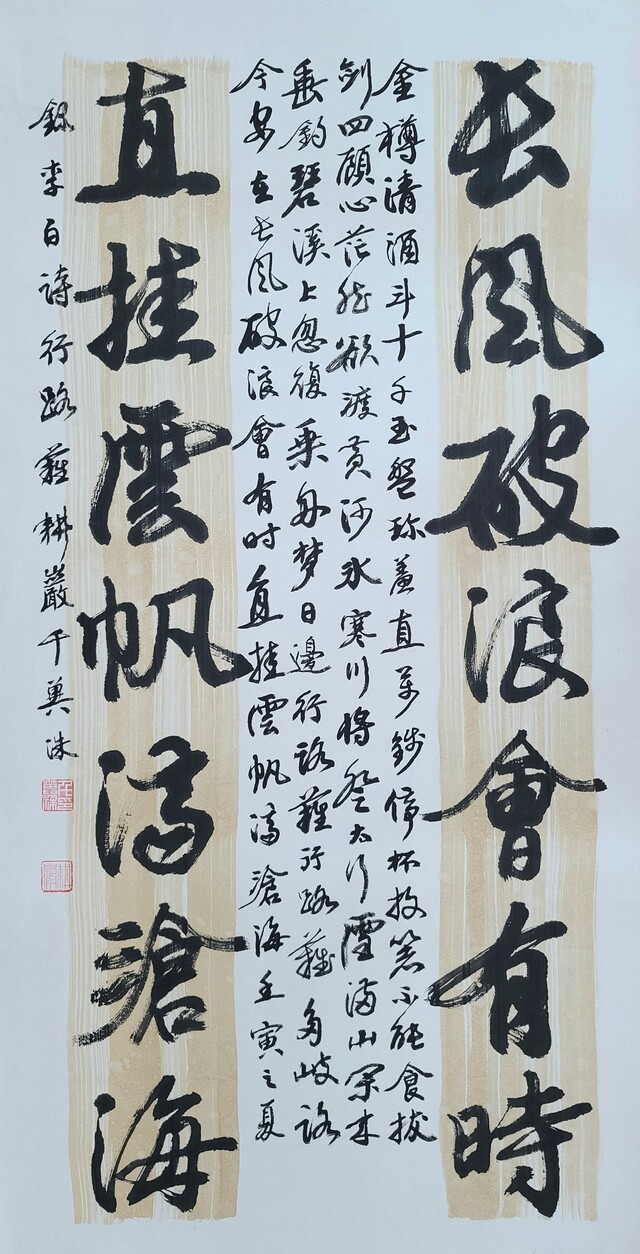 長風破浪會有時
金樽清酒斗十千玉盤珍羞直萬錢停杯投箸不能食拔
劍四顧心茫然欲渡黃河氷寒川將登太行雪滿山閑來
垂釣碧溪上忽復乘舟夢日邊行路難行路難多岐路
今安在長風破浪會有時直挂雲帆濟滄海壬寅之夏
直挂雲帆濟滄海
錄李白詩行路難耕巖千冀洙